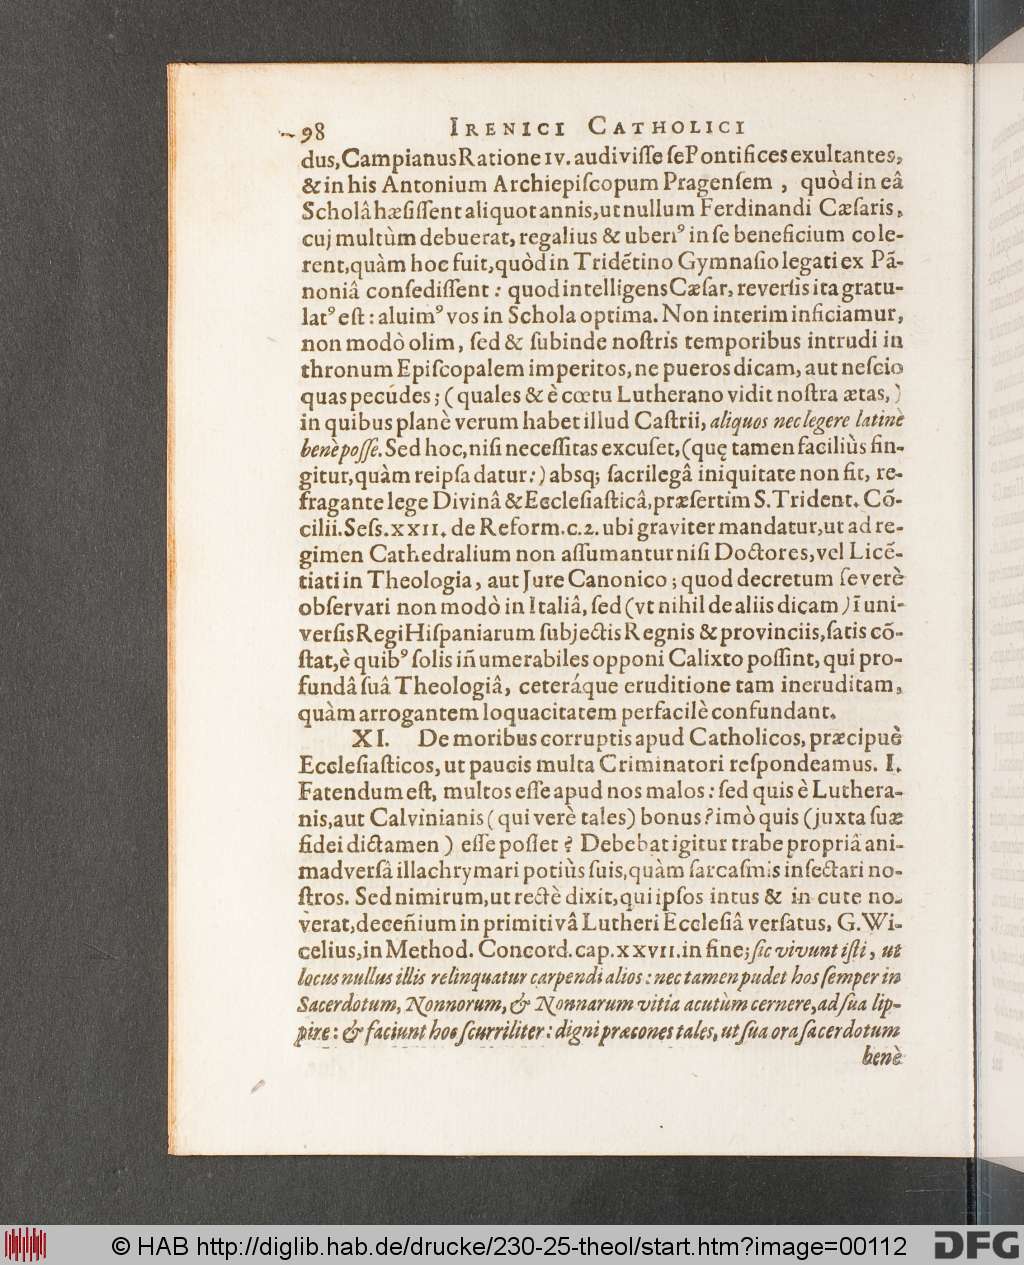 98 IRENICI CATHOLICI
dus, Campianus Ratione IV. audivisse ſe Pontifices exultantes,
& in his Antonium Archiepiſcopum Pragenſem, quòd in eâ
Scholâ hæſiſſent aliquot annis, ut nullum Ferdinandi Cæſaris,
cuj multùm debuerat, regalius & uberiꝰ in ſe beneficium cole-
rent, quàm hoc fuit, quòd in Tridẽtino Gymnaſio legati ex Pã-
noniâ conſediſſent: quod intelligens Cæſar, reverſis ita gratu-
latꝰ eſt: aluimꝰ vos in Schola optima. Non interim inficiamur,
non modò olim, ſed & ſubinde noſtris temporibus intrudi in
thronum Epiſcopalem imperitos, ne pueros dicam, aut neſcio
quas pecúdes; (quales & è cœtu Lutherano vidit noſtra ætas,)
in quibus planè verum habet illud Caſtrii, aliquos nec legere latinè
benè poſſe. Sed hoc, niſi neceſſitas excuſet, (quę tamen faciliùs fin-
gitur, quàm reipſa datur:) absq; ſacrilegâ iniquitate non fit, re-
fragante lege Divinâ & Eccleſiaſticâ, præſertim S. Trident. Cõ-
cilii. Seſs. XXII. de Reform. c. 2. ubi graviter mandatur, ut ad re-
gimen Cathedralium non aſſumantur niſi Doctores, vel Licẽ-
tiati in Theologia, aut Jure Canonico; quod decretum ſeverè
obſervari non modò in Italiâ, ſed (vt nihil de aliis dicam) ĩ uni-
verſis Regi Hiſpaniarum ſubjectis Regnis & provinciis, ſatis cõ-
ſtat, è quibꝰ ſolis iñumerabiles opponi Calixto poſſint, qui pro-
fundâ ſuâ Theologiâ, ceteráque eruditione tam ineruditam,
quàm arrogantem loquacitatem perfacilè confundant.
XI. De moribus corruptis apud Catholicos, præcipuè
Eccleſiaſticos, ut paucis multa Criminatori reſpondeamus. I.
Fatendum eſt, multos eſſe apud nos malos: ſed quis è Luthera-
nis, aut Calvinianis (qui verè tales) bonus? imò quis (juxta ſuæ
fidei dictamen) eſſe poſſet? Debebat igitur trabe propriâ ani-
madverſâ illachrymari potiùs ſuis, quàm ſarcaſmis inſectari no-
ſtros. Sed nimirum, ut rectè dixit, qui ipſos intus & in cute no-
verat, deceñium in primitivâ Lutheri Eccleſiâ verſatus, G. Wi-
celius, in Method. Concord. cap. XXVII. in fine; ſic vivunt iſti, ut
locus nullus illis relinquatur carpendi alios: nec tamen pudet hos ſemper in
Sacerdotum, Nonnorum, & Nonnarum vitia acutùm cernere, ad ſua lip-
pire: & faciunt hoc ſcurriliter: digni præcones tales, ut ſua ora ſacerdotum
benè
© HAB http://diglib.hab.de/drucke/230-25-theol/start.htm?image=00112 DFG